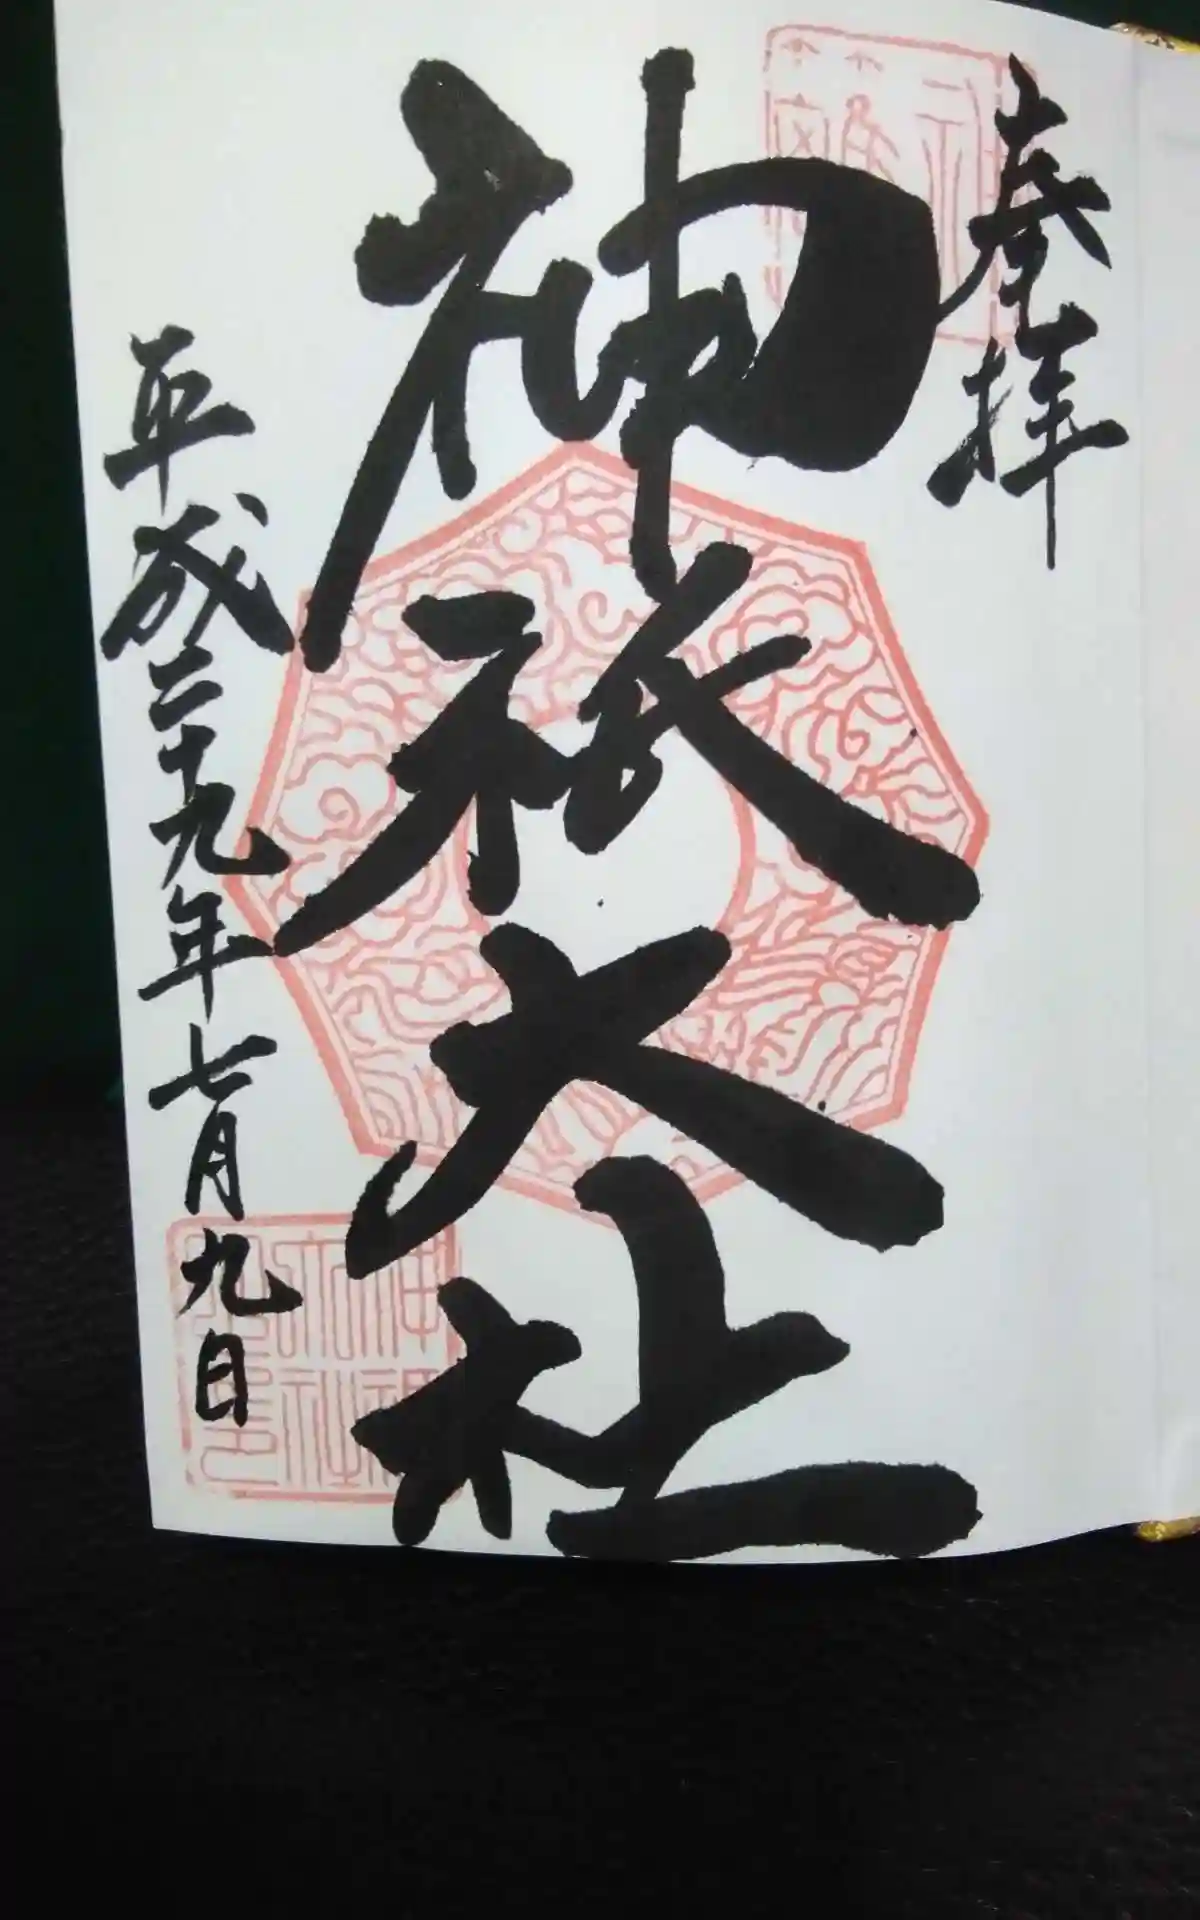 奉拝
神祇大社
平成二十九年七月九日